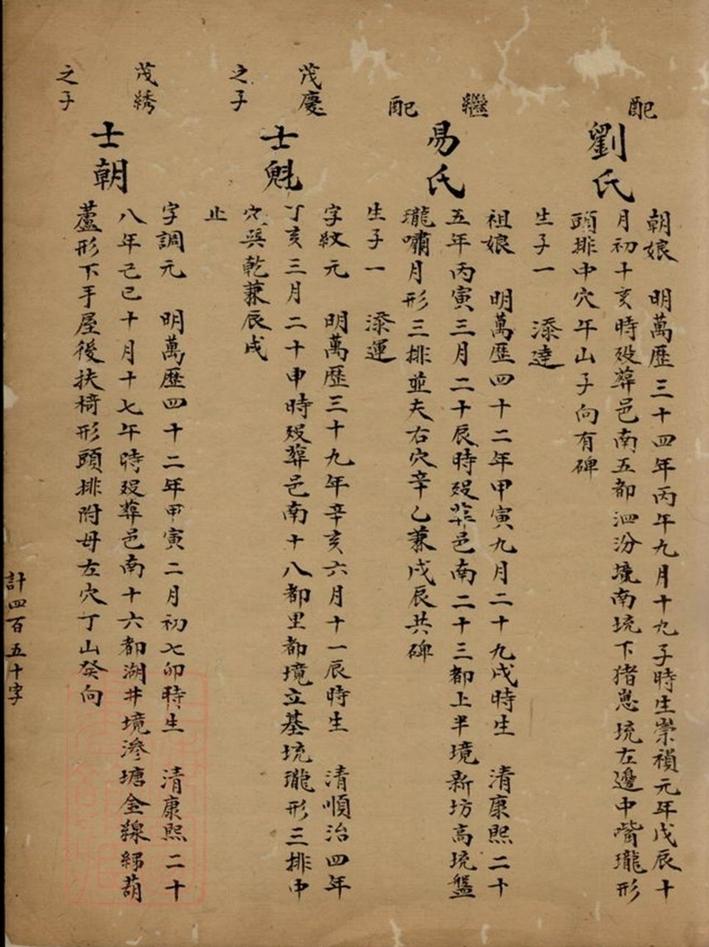 配
劉氏
朝娘 明萬歷三十四年丙午九月十九子時生崇禎元年戊辰十
月初十亥時歿葬邑南五都泗汾境南坑下猪崽坑左邊中嘴瓏形
頭排中穴午山子向有碑
生子一 添達
繼配
易氏
祖娘 明萬歷四十二年甲寅九月二十九戌時生 清康熙二十
五年丙寅三月二十辰時歿葬邑南二十三都上半境新坊高坑盤
瓏嘯月形三排並夫右穴辛乙兼戊辰共碑
生子一 添運
茂慶之子
士魁
字紋元 明萬歷三十九年辛亥六月十一辰時生 清順治四年
丁亥三月二十申時歿葬邑南十八都里都境立基坑瓏形三排中
穴巽乾兼辰戌
止
茂綉之子
士朝
字調元 明萬歷四十二年甲寅二月初七卯時生 清康熙二十
八年己巳十月十七午時歿葬邑南十六都湖井境滲塘金線綈葫
蘆形下手屋後扶椅形頭排附母左穴丁山癸向
計四百五十字